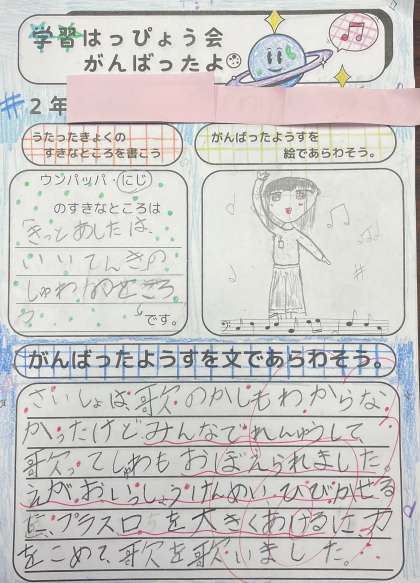 学習はっぴょう会
がんばったよ
2年
うたったきょくの
すきなところを書こう
がんばったようすを
絵であらわそう。
ウンパッパ・にじ
のすきなところは
「きっとあしたは、
いいてんき」の
しゅわのところ
です。
がんばったようすを文であらわそう。
さいしょは、歌のかしもわからな
かったけどみんなでれんしゅうして、
歌ってしゅわもおぼえられました。
えがおいっしょうけんめい、ひびかせる
プラスロを大きくあけるに、力
をこめて、歌を歌いました。